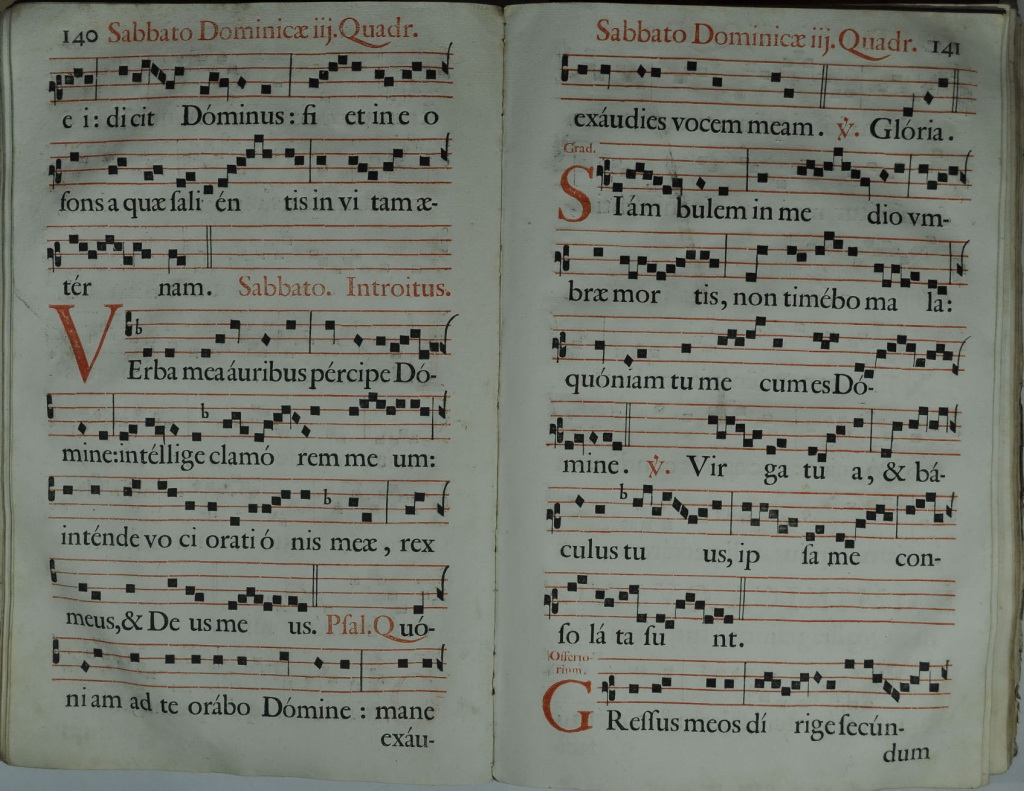 140 Sabbato Dominicæ iij. Quadr.
e i: di cit Dóminus: ſi et in e o
fons a quæ ſali én tis in vi tam æ-
tér nam. Sabbato. Introitus.
b
VErba mea áuribus pércipe Dó-
b
mine: intéllige clamó rem me um:
b
inténde vo ci orati ó nis meæ, rex
meus, & De us me us. Pſal. Quó-
ni am ad te orábo Dómine : mane
exáu-
Sabbato Dominicæ iij. Quadr. 141
exáudies vocem meam. ℣. Glória.
Grad.
SIám bulem in me dio vm-
bræ mor tis, non timébo ma la:
quóniam tu me cum es Dó-
mine. ℣. Vir ga tu a, & bá-
b
culus tu us, ip ſa me con-
ſo lá ta ſu nt.
Offerto-
rium.
GReſſus meos dí rige ſecún-
dum